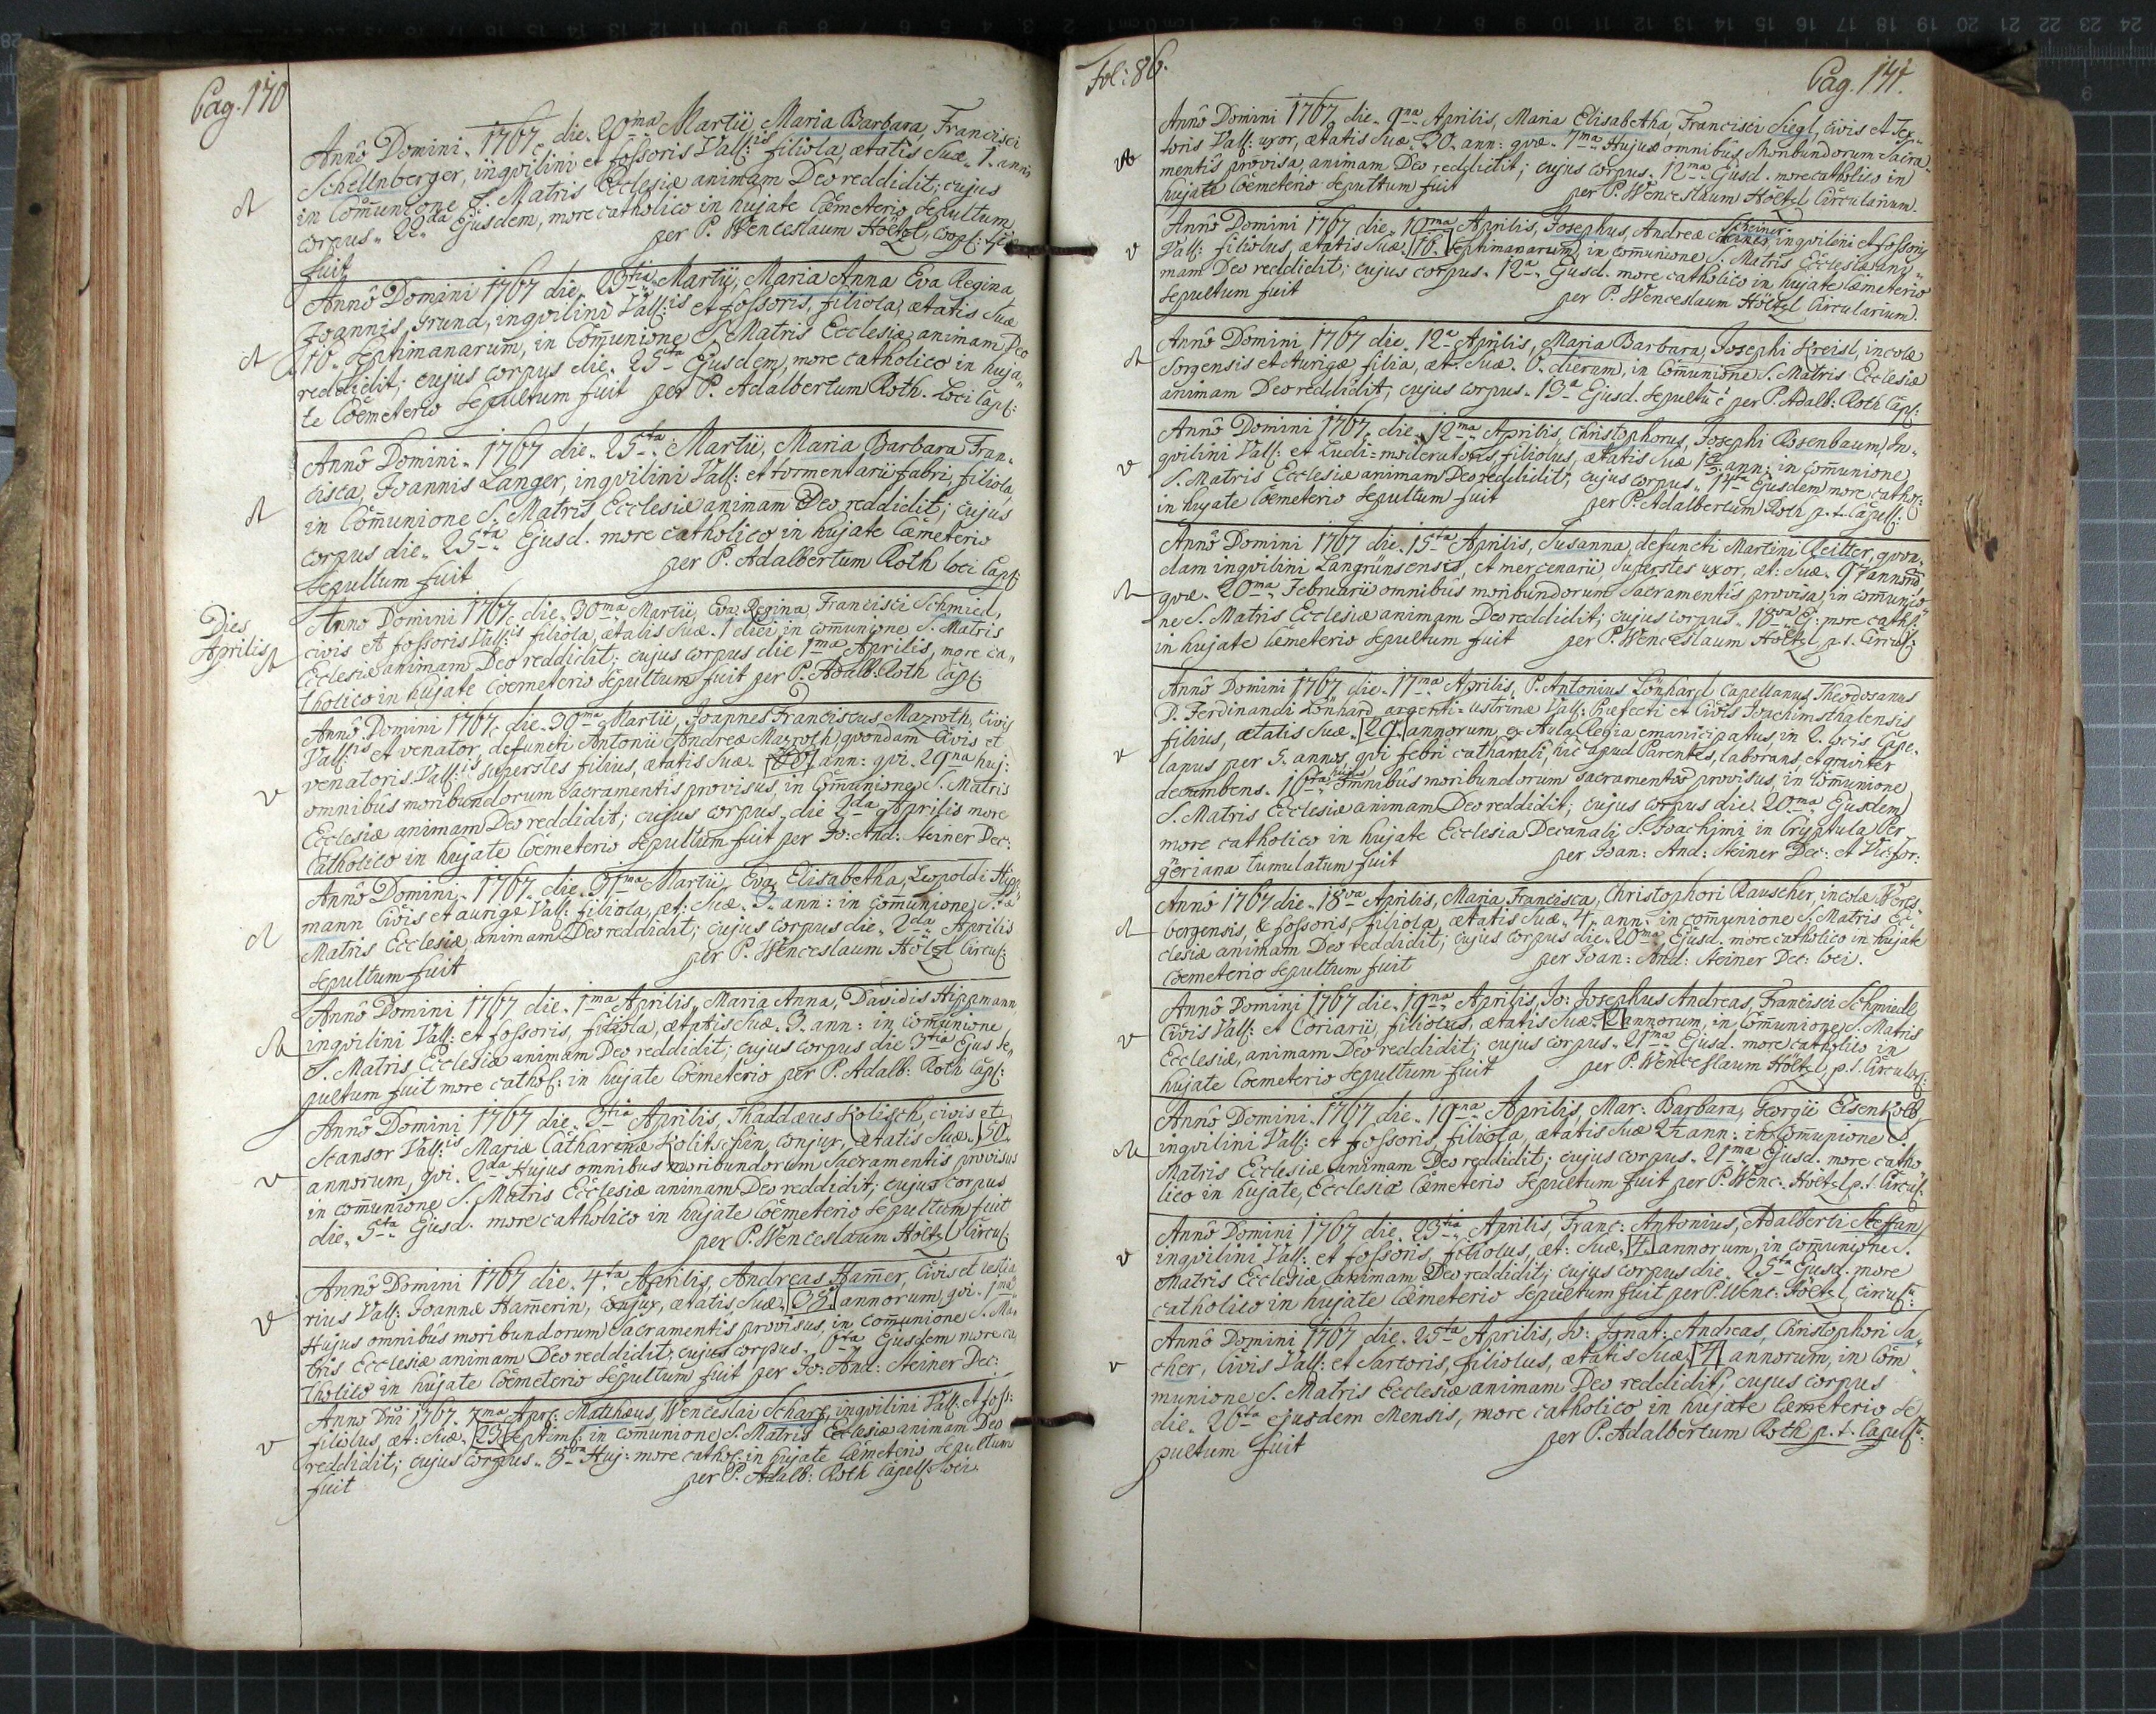 Pag. 170
Annô Domini 1767 die 20ma Martii, Maria Barbara, Francisci
Schellnberger, inqvilini et fossoris Vall:is filiola, ætatis Suæ 1. anni
in Com̃unione S. Matris Ecclesiæ animam Deo reddidit; cujus
corpus 22da Ejusdem, more catholico in hujate Cœmeterio Sepultum
fuit per P. Wenceslaum Höltzl, Coop:
Annô Domini 1767 die 23tia Martii, Maria Anna Eva Regina
Joannis Grund, inqvilini Vall:is et fossoris, filiola, ætatis Suæ
16. Septimanarum, in Com̃unione S. Matris Ecclesiæ animam Deo
reddidit; cujus corpus die 25ta Ejusdem, more catholico in huja„
te Cœmeterio Sepultum fuit per P. Adalbertum Roth. Loci Capl:
Annô Domini 1767 die 25ta Martii, Maria Barbara Fran„
cisca, Joannis Langer, inqvilini Vall: et tormentarii fabri, filiola,
in Com̃unione S. Matris Ecclesiæ animam Deo reddidit; cujus
corpus die 25ta Ejusd. more catholico in hujate Cœmeterio
Sepultum fuit per P. Adalbertum Roth loci Capl:
Dies
Aprilis
Anno Domini 1767 die 30ma Martii, Eva Regina Francisci Schmied,
civis et fossoris Vall:is filiola, ætatis Suæ 1 diei, in com̃unione S. Matris
Ecclesiæ animam Deo reddidit; cujus corpus die 1ma Aprilis, more ca„
tholico in hujate Cœmeterio Sepultum fuit per P. Adalb: Roth Capl:
Annô Domini 1767 die 30ma Martii, Joannes Franciscus Mazroth, Civis
Vall:is et venator, defuncti Antonii Andreæ Mazroth, qvondam Civis et
venatoris Vall:is superstes filius, ætatis Suæ ann: qvi 29na huj:
omnibûs moribundorum Sacramentis provisus, in Com̃unione S. Matris
Ecclesiæ animam Deo reddidit; cujus corpus die 2da Aprilis more
Catholico in hujate Cœmeterio Sepultum fuit per Jo: And: Steiner Dec:
Annô Domini 1767 die 31ma Martii, Eva Elisabetha, Leopoldi Hipp
mann Civis et aurigæ Vall: filiola, æt: Suæ 3. ann: in com̃unione S.
Matris Ecclesiæ animam Deo reddidit; cujus corpus die 2da Aprilis
Sepultum fuit per P. Wenceslaum Höltzl Circul:
Annô Domini 1767 die 1ma Aprilis, Maria Anna, Davidis Hippmann,
inqvilini Vall: et fossoris, filiola, ætatis Suæ 3. ann: in com̃unione
S. Matris Ecclesiæ animam Deo reddidit; cujus corpus die 3tia Ejus Se„
pultum fuit more cathol: in hujate Cœmeterio per P. Adalb: Roth Capl:
Annô Domini 1767 die 3tia Aprilis, Thaddæus Kolitsch, civis et
Scansor Vall:is Mariæ Catharinæ Kolitschin, conjux, ætatis Suæ 50
annorum, qvi 2da Hujus omnibus moribundorum Sacramentis provisus
in com̃unione S. Matris Ecclesiæ animam Deo reddidit; cujus corpus
die 5ta Ejusd. more catholico in hujate Cœmeterio Sepultum fuit
per P. Wenceslaum Höltzl Circul:
Annô Domini 1767 die 4ta Aprilis, Andreas Ham̃er, Civis et
rius Vall: Joannæ Ham̃erin, Conjux, ætatis Suæ 38. annorum, qvi 1ma
Hujus omnibûs moribundorum Sacramentis provisus, in Com̃unione S. Ma„
tris Ecclesiæ animam Deo reddidit, cujus corpus 6ta Ejusdem more ca„
tholico in hujate Cœmeterio Sepultum fuit per Jo: And: Steiner Dec:
Annô Dñi 1767. 7ma Apri: Matthæus, Wenceslai Scharf, inqvilini Vall: et foss:
filiolus, æt: Suæ 23 Septim: in com̃unione S. Matris Ecclesiæ animam Deo
reddidit; cujus corpus 8va Huj: more cathol: in hujate Cœmeterio Sepultum
fuit per P. Adalb: Roth Capell: loci
Fol: 86.
Pag. 171.
Annô Domini 1767 die 9na Aprilis, Maria Elisabetha, Francisci Siegl, Civis et Tex„
toris Vall: uxor, ætatis Suæ 30. ann: qvæ 7ma Hujus omnibus Moribundorum Sacra„
mentis provisa, animam Deo reddidit; cujus corpus 12ma Ejusd. more catholico in
hujate Cœmeterio Sepultum fuit per P. Wenceslaum Höltzl Circularium.
Annô Domini 1767 die 10ma Aprilis, Josephus, Andreæ Scheiner inqvilini et fossoris
Vall: filiolus, ætatis Suæ 16. Septimanarum, in com̃unione S. Matris Ecclesiæ ani„
mam Deo reddidit; cujus corpus 12a Ejusd. more catholico in hujate Cœmeterio
Sepultum fuit per P. Wenceslaum Höltzl Circularium.
Annô Domini 1767 die 12a Aprilis, Maria Barbara, Josephi Kreisl, incolæ
Sorgensis et Aurigæ filia, æt: Suæ 6. dierum, in Com̃unione S. Matris Ecclesiæ
animam Deo reddidit, cujus corpus 13a Ejusd. Sepultũ ẽ per P. Adalb: Roth Capl:
Annô Domini 1767 die 12ma Aprilis, Christophorus, Josephi Rosenbaum, in„
qvilini Vall: et Ludi-moderatoris, filiolus, ætatis Suæ ann: in com̃unione
S. Matris Ecclesiæ animam Deo reddidit; cujus corpus 14ta Ejusdem more cathol:
in hujate Cœmeterio Sepultum fuit per P. Adalbertum Roth p. t. Capell:
Annô Domini 1767 die 15ta Aprilis, Susanna, defuncti Martini Reitter, qvon„
dam inqvilini Langrünsensis, et mercenarii, Superstes uxor, æt: Suæ annorũ
qvæ 20ma Februarii omnibus moribundorum Sacramentis provisa, in com̃unio„
ne S. Matris Ecclesiæ animam Deo reddidit; cujus corpus 18va Ej: more cathl:
in hujate Cœmeterio Sepultum fuit per P. Wenceslaum Höltzl p. t. Circul:
Annô Domini 1767 die 17ma Aprilis, P. Antonius Lönhard Capellanus Theodosanus
D. Ferdinandi Lönhard argenti-ustrinæ Vall: Præfecti et Civis Joachimsthalensis
filius, ætatis Suæ 29. annorum, ex Aula Regia emancipatus, in 2. locis Cape„
lanus per 5. annos, qvi febri catharrali, hic apud Parentes, laborans, et graviter
decumbens 16ta hujus omnibûs moribundorum sacramentis provisus, in Com̃unione
S. Matris Ecclesiæ animam Deo reddidit; cujus corpus die 20ma Ejusdem
more catholico in hujate Ecclesia Decanali S. Joachimi in Cryptula Ber„
geriana tumulatum fuit per Joan: And: Steiner Dec: et Vic: for:
Annô 1767 die 18va Aprilis, Maria Francisca, Christophori Rauscher, incolæ Werls„
bergensis, & fossoris, filiola, ætatis Suæ 4. ann: in com̃unione S. Matris Ec„
clesiæ animam Deo reddidit; cujus corpus die 20ma Ejusd. more catholico in hujate
Cœmeterio Sepultum fuit per Joan: And: Steiner Dec: loci.
Annô Domini 1767 die 19na Aprilis, Jo: Josephus Andreas, Francisci Schmiedl,
Civis Vall: et Coriarii, filiolus, ætatis Suæ 2 annorum, in Com̃unione S. Matris
Ecclesiæ, animam Deo reddidit; cujus corpus 21ma Ejusd. more catholico in
hujate Cœmeterio Sepultum fuit per P. Wenceslaum Höltzl p. t. Circular:
Annô Domini 1767 die 19na Aprilis, Mar: Barbara, Georgii Eisenkolb
inqvilini Vall: et fossoris, filiola, ætatis Suæ 2½ ann: in Com̃unione S.
Matris Ecclesiæ animam Deo reddidit; cujus corpus 21ma Ejusd. more catho„
lico in hujate, Ecclesiæ Cœmeterio Sepultum fuit per P. Wenc. Höltzl p. t. Circul:
Annô Domini 1767 die 23tia Aprilis, Franc: Antonius, Adalberti Steffan,
inqvilini Vall: et fossoris, filiolus, æt: Suæ 4. annorum, in com̃unione S.
Matris Ecclesiæ animam Deo reddidit; cujus corpus die 25ta Ejusd. more
catholico in hujate Cœmeterio Sepultum fuit per P. Wenc: Höltzl Circul:
Annô Domini 1767 die 25ta Aprilis, Jo: Ignat: Andreas, Christophori Sa„
cher, Civis Vall: et Sartoris, filiolus, ætatis Suæ 4 annorum, in Com̃
munione S. Matris Ecclesiæ animam Deo reddidit, cujus corpus
die 26ta ejusdem Mensis, more catholico in hujate Cœmeterio Se„
pultum fuit per P. Adalbertum Roth p. t. Capell: